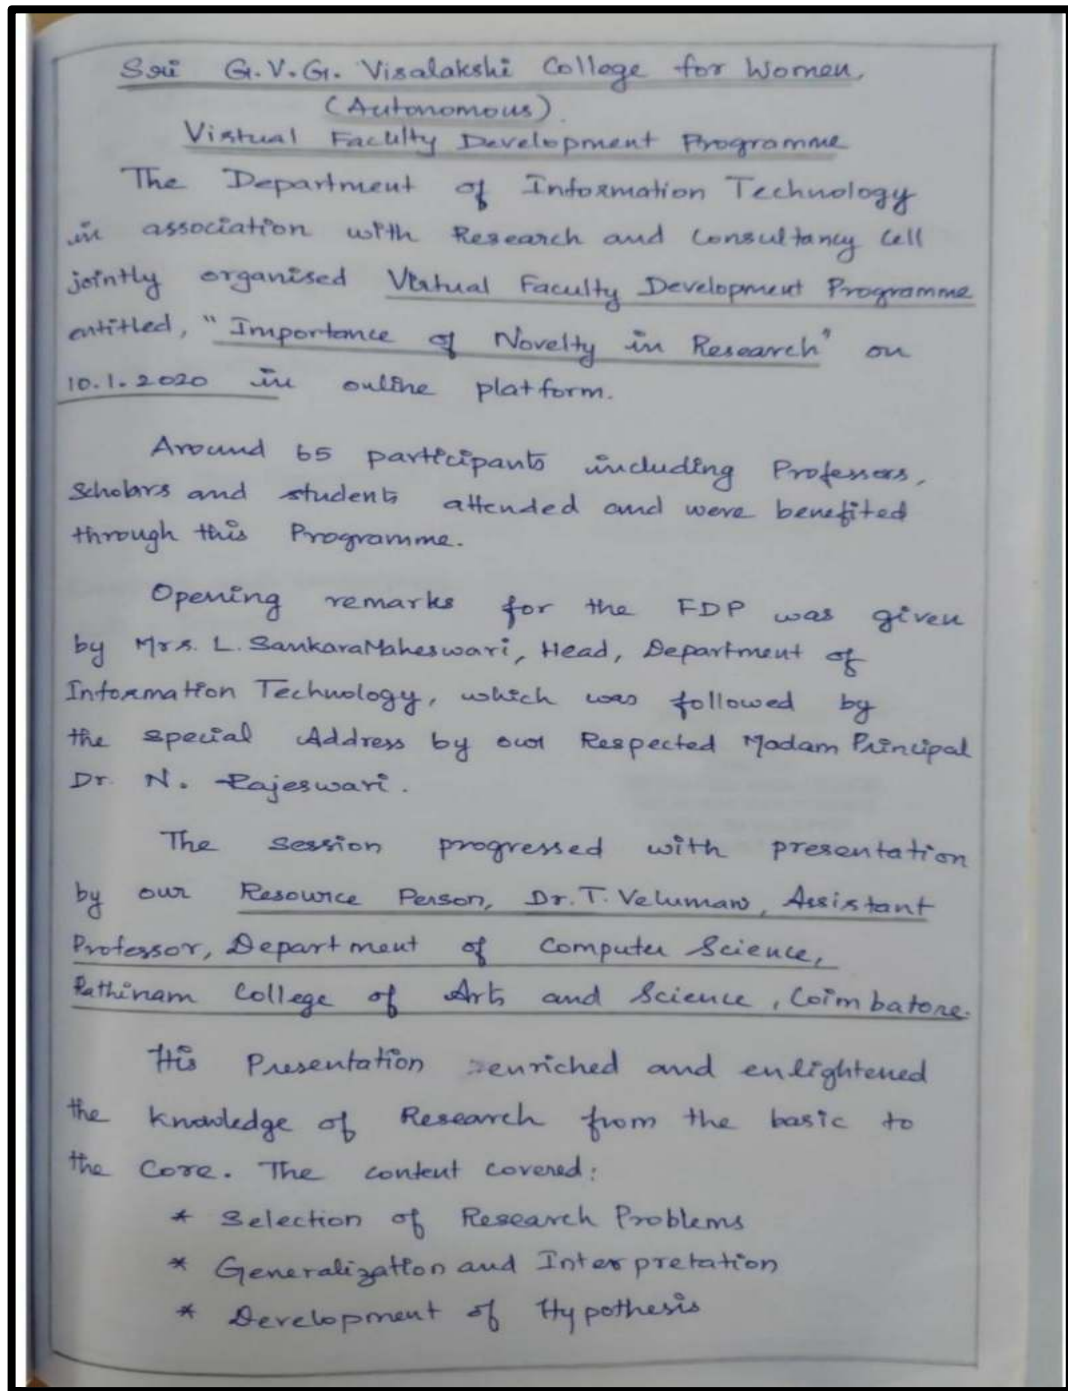 Sri G.V.G. Visalakshi College for Women,
(Autonomous).
Virtual Faculty Development Programme
The Department of Information Technology
in association with Research and Consultancy Cell
jointly organised Virtual Faculty Development Programme
entitled, "Importance of Novelty in Research" on
10.1.2020 in online platform.
Around 65 participants including Professors,
Scholars and students attended and were benefited
through this Programme.
Opening remarks for the FDP was given
by Mrs. L. SankaraMaheswari, Head, Department of
Information Technology, which was followed by
the special Address by our Respected Madam Principal
Dr. N. Rajeswari.
The session progressed with presentation
by our Resource Person, Dr. T. Velumani, Assistant
Professor, Department of Computer Science,
Rathinam College of Arts and Science, Coimbatore.
His Presentation enriched and enlightened
the knowledge of Research from the basic to
the Core. The content covered:
* Selection of Research Problems
* Generalization and Interpretation
* Development of Hypothesis